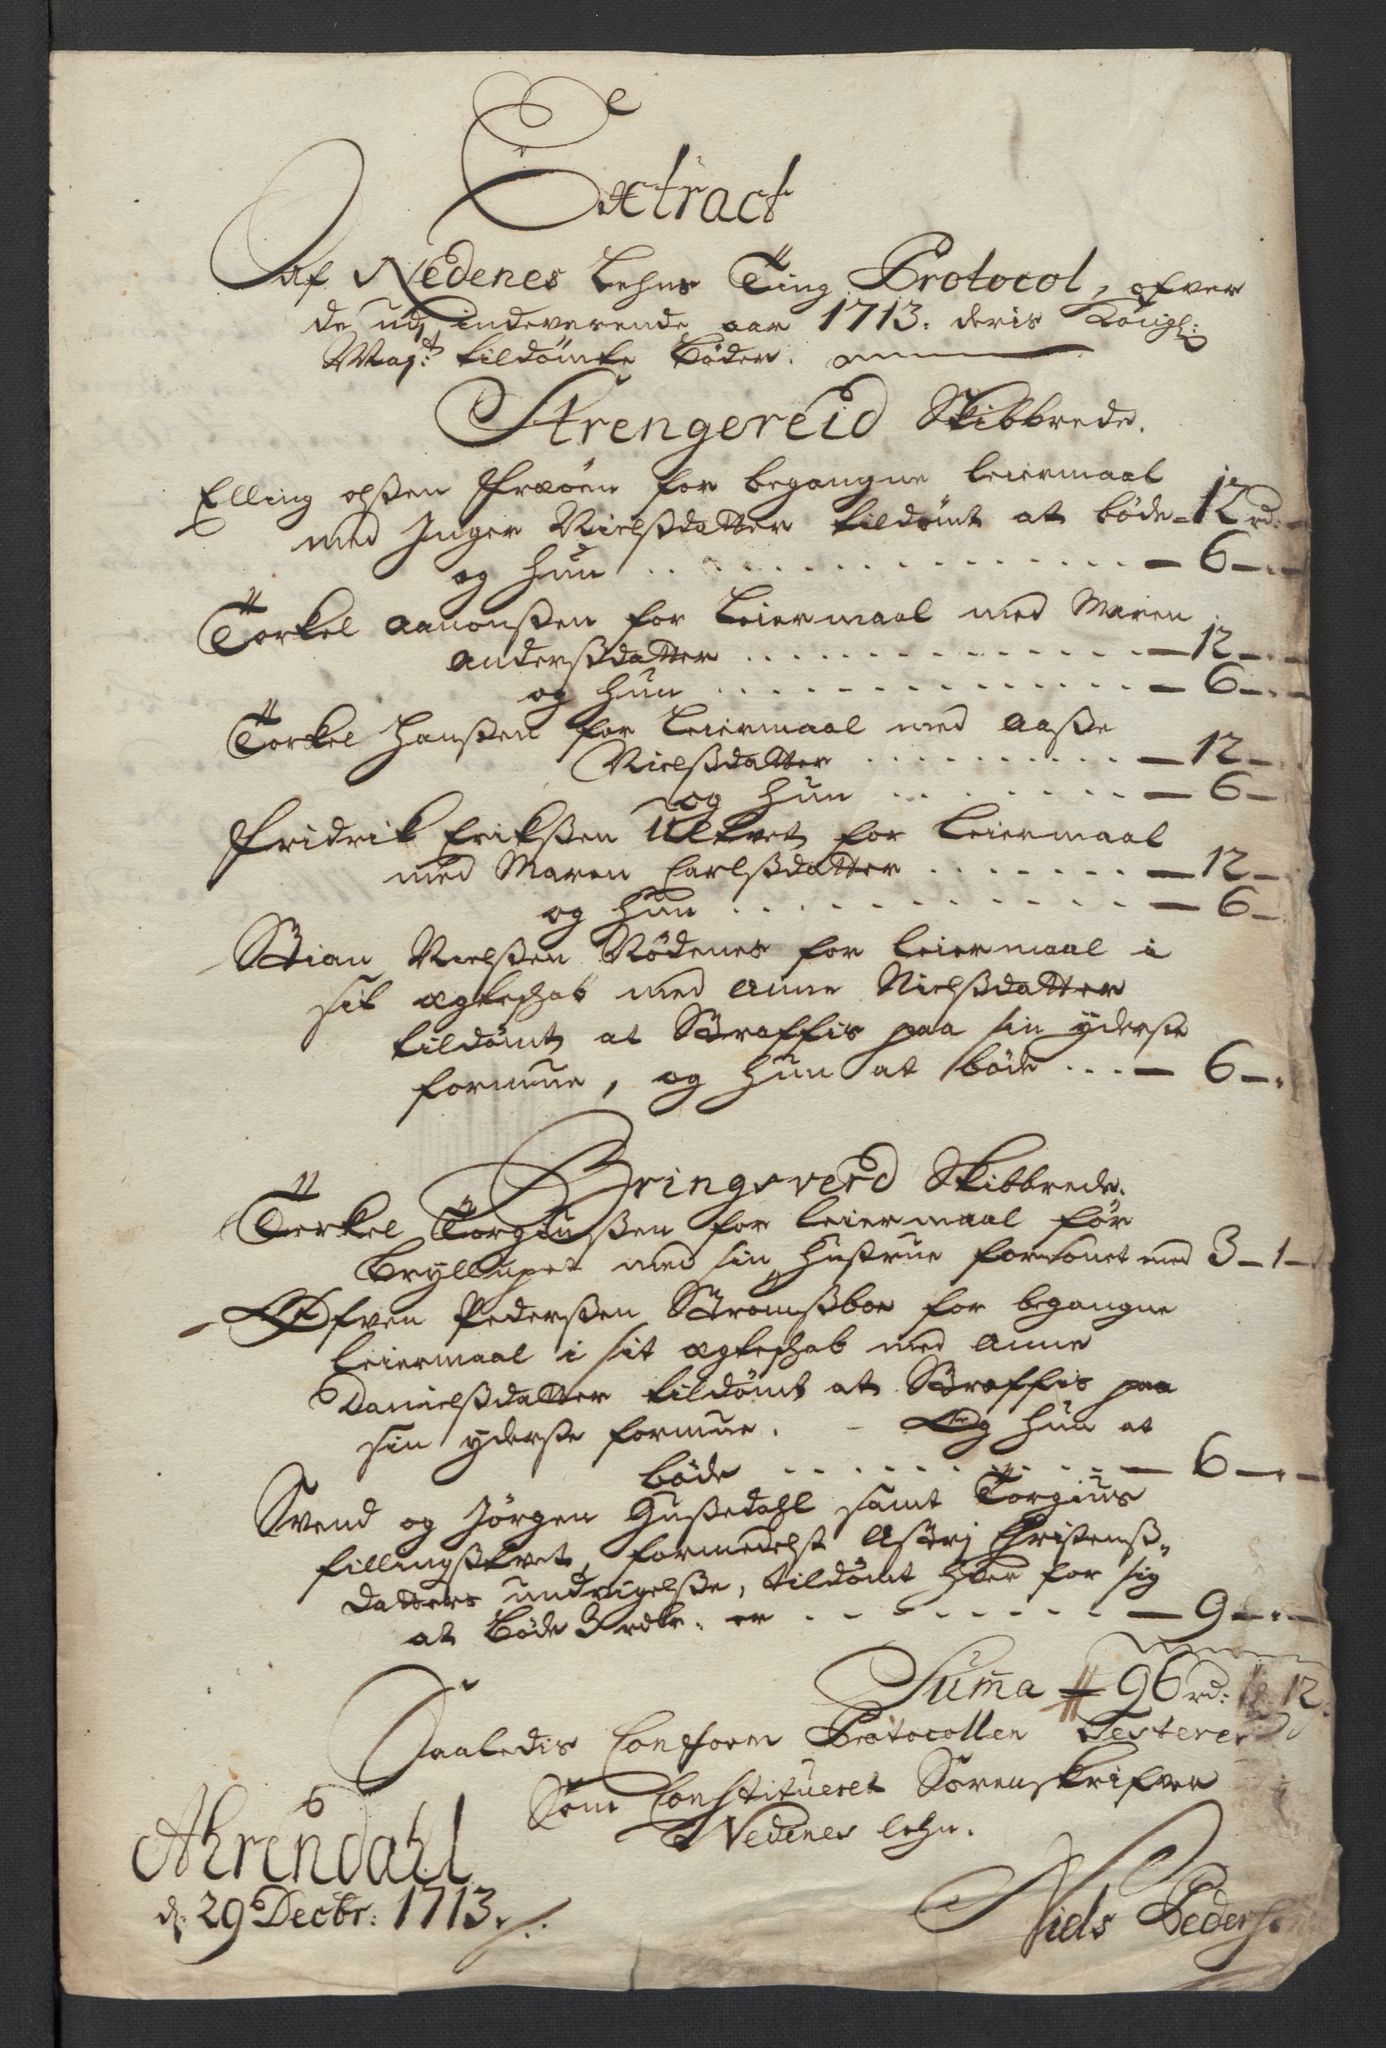 Extract
Af Nedenes Lehns Ting Protocol, ofver
de udj indeverende aar 1713. deris Kongl:
Mayt: tildømte Bøder.
Strengereid Skibbrede.
Elling olßen Fræøen for begangne leiermaal
med Inger Nielßdatter tildømt at bøde - 12 rd:
og hun - 6 -
Torkel Aanonßen for Leiermaal med Maren
Anderßdatter - 12 -
og hun - 6 -
Torkel Hanßen for Leiermaal med Aaße
Nielßdatter - 12 -
og hun - 6 -
Fridrik Erikßen for Leiermaal
med Maren Carlßdatter - 12 -
og hun - 6 -
Stian Nielßen Nødenes for leiermaal i
sit ægteskab med Anne Nielßdatter
tildømt at Straffis paa sin yderste
formue, og hun at bøde - 6 -
Bringsverd Skibbrede.
Terkel Torgiußen for leiermaal før
Bryllupet med sin Hustrue forsonet med 3 - 1 -
Ofven Pederßen Stromßboe for begangne
leiermaal i sit ægteskab med Anne
Danielßdatter tildømt at Straffis paa
sin yderste formue. - Og hun at
bøde - 6 -
Svend og Jørgen Gußedahl samt Torgius
fillingßtvet, formedelst Astrj Christenß-
datters undvigelße, tildømt hver for sig
at Bøde 3 rdlr. er - 9 -
Suma 96 rd: 12
Saaledis Conform Protocollen Testerer
Som Constitueret Sorenskrifver
Nedenes lehn.
Ahrendahl
d: 29 Decbr: 1713.
Niels Pedersen